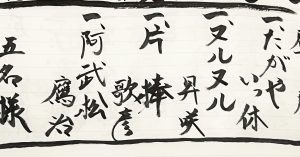 一、たがや
いっ休
一、ヌルヌル
昇咲
一、片棒
歌彦
一、阿武松
鷹治
五名様